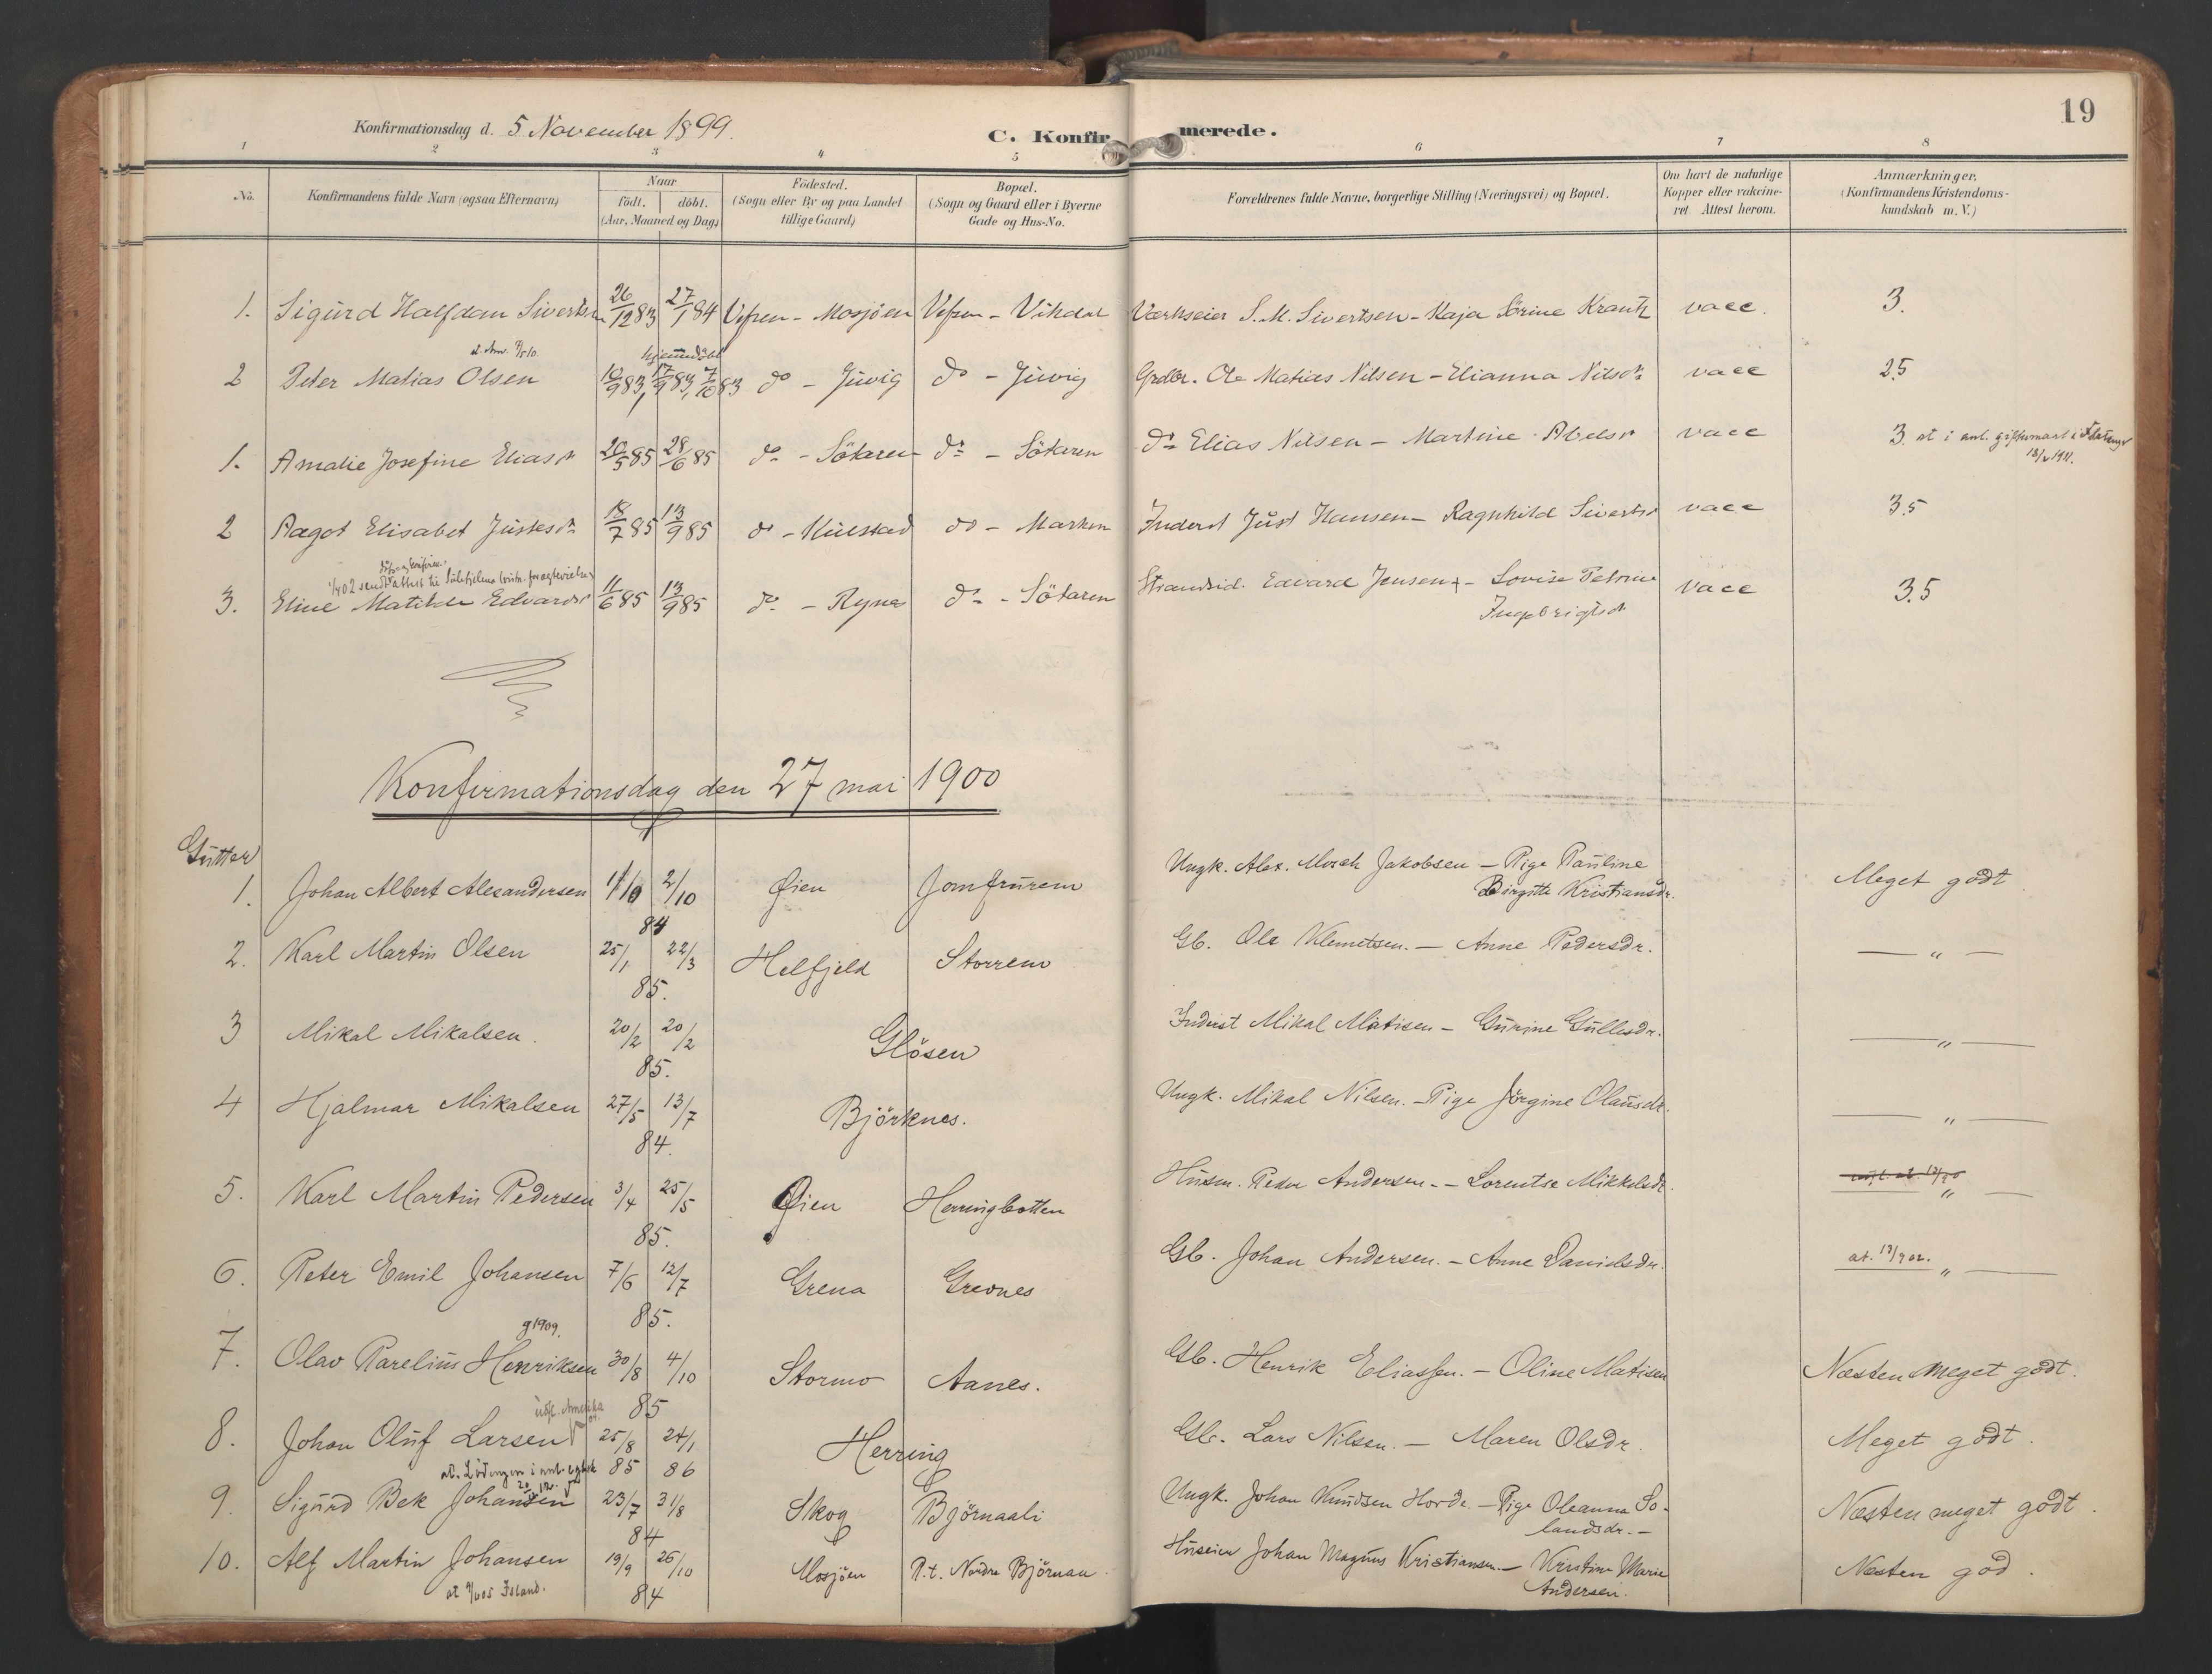 19
Konfirmationsdag d. 5 November 1899.
C. Konfirmerede.
1 2 3 4 5 6 7 8
No.
Konfirmandens fulde Navn (ogsaa Efternavn)
Naar
födt. döbt.
(Aar, Maaned og Dag)
Födested.
(Sogn eller By og paa Landet
tillige Gaard)
Bopæl.
(Sogn og Gaard eller i Byerne
Gade og Hus-No.
Forældrenes fulde Navne, borgerlige Stilling (Næringsvei) og Bopæl.
Om havt de naturlige
Kopper eller vakcine-
ret Attest herom.
Anmærkninger,
(Konfirmandens Kristendoms-
kundskab m. V.)
1. Sigurd Halfdan Sivertsen 26/12 83 27/1 84 Vefsen - Mosjöen Vefsen - Vikdal Værkseier S. M. Sivertsen - Kaja Sörine Krantz vacc. 3.
hjemmedöbt
2 Peter Matias Olsen 10/9 83, 17/9 83, 7/10 83 do - Juvig do - Juvig Grdbr. Ole Matias Nilsen - Elianna Nilsdr vacc 2.5
1. Amalie Josefine Eliasdr 20/5 85 28/6 85 do - Sötaren do - Sötaren do Elias Nilsen - Martine Abelsdr vacc 3 at i anl. giftermaal
1911.
2 Aagot Elisabet Justesdr 18/7 85 13/9 85 do - Kulstad do - Marken Inderst Just Hansen - Ragnhild Sivertsdr vacc 3.5
3. Eline Matilde Edvardsdr 11/6 85 13/9 85 do - Rynes do - Sötaren Strandsid. Edvard Jensen + - Lovise Petrine vacc 3.5
Ingebrigtsdr
Konfirmationsdag den 27 mai 1900
Gutter
1. Johan Albert Alexandersen 11/8 2/10 Øien Jomfrurem Ungk. Alex. Jakobsen - Pige Pauline Meget godt
84 Birgitte Kristiansdr.
2. Karl Martin Olsen 25/1 22/3 Helfjeld Storrem Gb. Ole Klemetsen. - Anne Pedersdr. — " —
85.
3 Mikal Mikalsen. 20/2 20/2 Glösen Inderst Mikal Matisen - Gurine Gullesdr. — " —
85.
4 Hjalmar Mikalsen 27/5 13/7 Björknes. Ungk. Mikal Nilsen. - Pige Jörgine Olausdr. — " —
84.
5. Karl Martin Pedersen 3/4 25/5 Øien Herringbotten Husm. Peder Andersen. - Lorentse Mikkelsdr. — " —
85.
6. Peter Emil Johansen 7/6 12/7 Grena Grevnes Gb. Johan Andersen. - Anne Danielsdr. at. 13/9 02. — " —
85.
g 1909.
7. Olav Parelius Henriksen 30/8 4/10 Stormo Aanes. Gb. Henrik Eliassen. - Oline Matisen Næsten meget godt.
85
udfl. Amerika
8. Johan Oluf Larsen 25/8 24/1 Herring Gb. Lars Nilsen. - Maren Olsdr. Meget godt.
85 86
at. Lödingen i anl. egtsk
9. Sigurd Bek Johansen 23/7 31/8 Skog Björnaali Ungk. Johan Knudsen Horde. - Pige Oleanna So- Næsten meget godt.
84 landsdr. -
10. Alf Martin Johansen 19/9 26/10 Mosjöen P.t. Nordre Björnaa Huseier Johan Magnus Kristiansen. - Kristine Marie Næsten god.
84 Andersen.